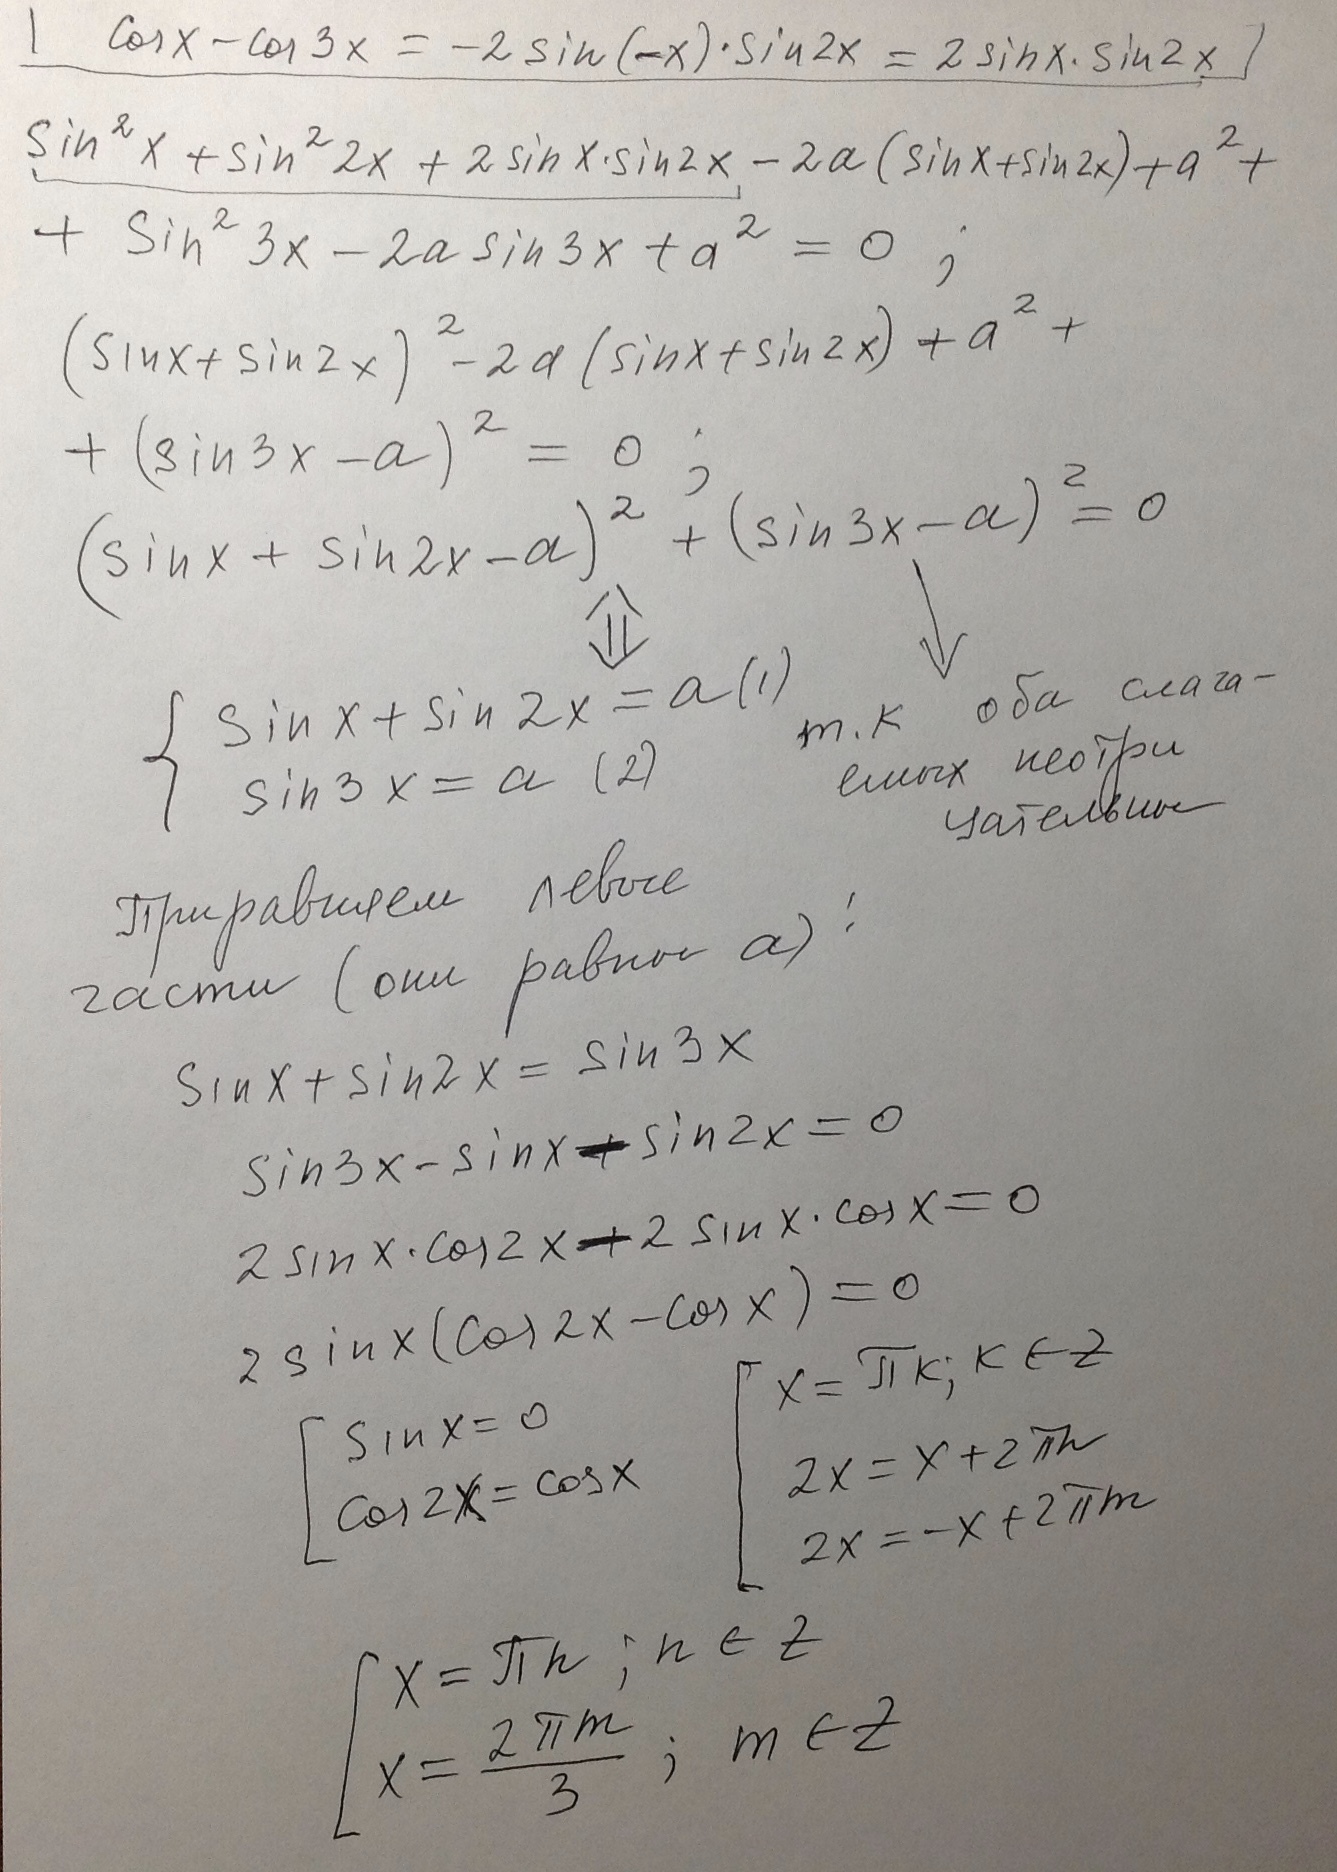 | cosx - cos3x = -2sin(-x)·sin2x = 2sinx·sin2x |
sin²x + sin²2x + 2sinx·sin2x - 2a(sinx+sin2x)+a²+
+ sin²3x - 2a sin3x + a² = 0 ;
(sinx+sin2x)² - 2a(sinx+sin2x)+a²+
+ (sin3x-a)² = 0 ;
(sinx + sin2x-a)² + (sin3x-a)² = 0
⇕
{ sinx+sin2x = a (1)
sin3x = a (2)
т.к оба слага-
емых неотри
цательны
Приравняем левые
части (они равны a):
sinx+sin2x = sin3x
sin3x-sinx-sin2x=0
2sinx·cos2x-2sinx·cosx=0
2sinx(cos2x-cosx)=0
[ sinx=0
cos2x=cosx
[ x=πk; k∈Z
2x=x+2πn
2x=-x+2πm
[ x=πn ; n∈Z
x=2πm/3 ; m∈Z